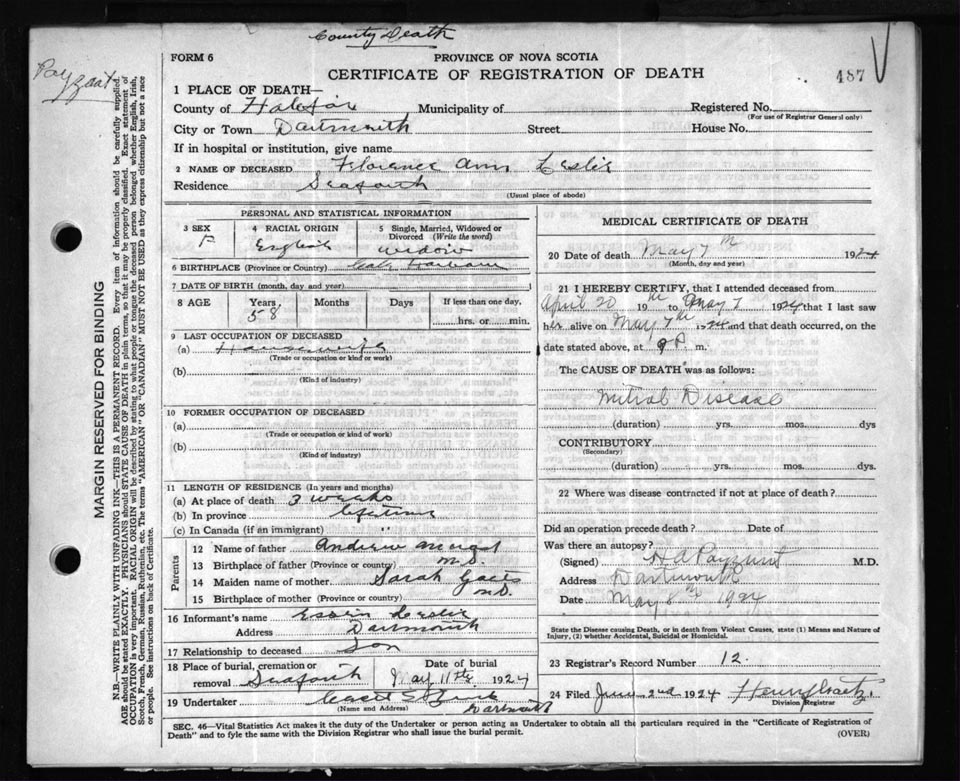 County Death
Payzant
FORM 6
PROVINCE OF NOVA SCOTIA
CERTIFICATE OF REGISTRATION OF DEATH
487
1 PLACE OF DEATH—
County of Halifax Municipality of Registered No.
(For use of Registrar General only)
City or Town Dartmouth Street House No.
If in hospital or institution, give name
2 NAME OF DECEASED Florence Ann Leslie
Residence Seaforth
(Usual place of abode)
PERSONAL AND STATISTICAL INFORMATION
3 SEX F
4 RACIAL ORIGIN English
5 Single, Married, Widowed or Divorced (Write the word) widow
6 BIRTHPLACE (Province or Country)
7 DATE OF BIRTH (month, day and year)
8 AGE Years 58 Months Days If less than one day, hrs. or min.
9 LAST OCCUPATION OF DECEASED
(a) Housewife
(Trade or occupation or kind or work)
(b)
(Kind of industry)
10 FORMER OCCUPATION OF DECEASED
(a)
(Trade or occupation or kind of work)
(b)
(Kind of industry)
11 LENGTH OF RESIDENCE (In years and months)
(a) At place of death 3 weeks
(b) In province lifetime
(c) In Canada (if an immigrant) "
Parents
12 Name of father Andrew
13 Birthplace of father (Province or country) N.S.
14 Maiden name of mother Sarah Gaetz
15 Birthplace of mother (Province or country) N.S.
16 Informant's name Leslie
Address Dartmouth
17 Relationship to deceased Son
18 Place of burial, cremation or removal Seaforth
Date of burial May 11th 1924
19 Undertaker Dartmouth
(Name and Address)
MEDICAL CERTIFICATE OF DEATH
20 Date of death May 7th 1924
(Month, day and year)
21 I HEREBY CERTIFY, that I attended deceased from
April 20th 19 to May 7 1924 that I last saw
her alive on May 7th 1924 and that death occurred, on
date stated above, at 9 P. m.
The CAUSE OF DEATH was as follows:
Mitral Disease
(duration) yrs. mos. dys
CONTRIBUTORY
(Secondary)
(duration) yrs. mos. dys.
22 Where was disease contracted if not at place of death?
Did an operation precede death? Date of
Was there an autopsy?
(Signed) H A Payzant M.D.
Address Dartmouth
Date May 8th 1924
State the Disease causing Death, or in death from Violent Causes, state (1) Means and Nature of
Injury, (2) whether Accidental, Suicidal or Homicidal.
23 Registrar's Record Number 12.
24 Filed June 2nd 1924 Henry Gaetz
Division Registrar
SEC. 46—Vital Statistics Act makes it the duty of the Undertaker or person acting as Undertaker to obtain all the particulars required in the "Certificate of Registration of
Death" and to fyle the same with the Division Registrar who shall issue the burial permit.
(OVER)
MARGIN RESERVED FOR BINDING
N.B.—WRITE PLAINLY WITH UNFADING INK—THIS IS A PERMANENT RECORD. Every item of information should be carefully supplied.
AGE should be stated EXACTLY. PHYSICIANS should STATE CAUSE OF DEATH in plain terms, so that it may be properly classified. Exact statement of
OCCUPATION is very important. RACIAL ORIGIN will be described by stating to what people or tongue the deceased person belonged whether English, Irish,
Scotch, French, German, Russian, Ruthenian, etc. The terms "AMERICAN" OR "CANADIAN" MUST NOT BE USED as they express citizenship but not a race
or people. See instructions on back of Certificate.